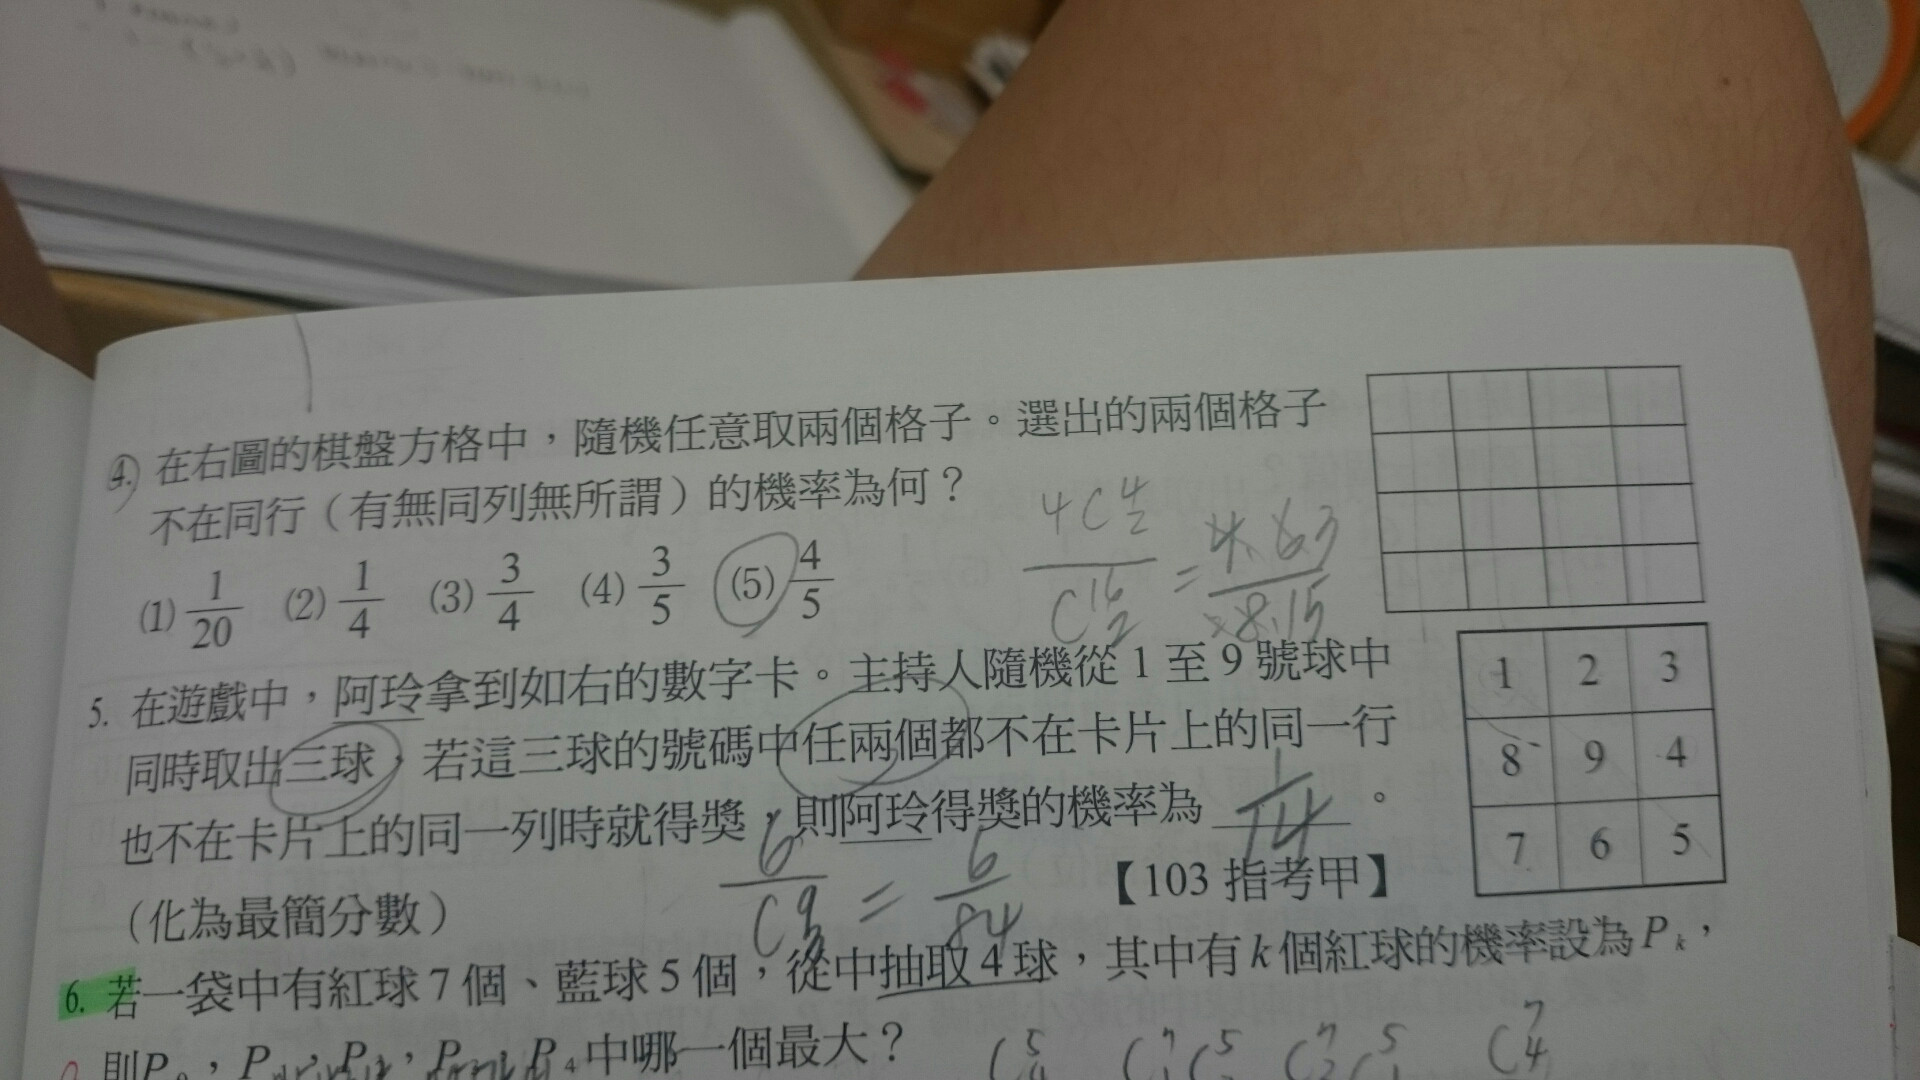 4. 在右圖的棋盤方格中，隨機任意取兩個格子。選出的兩個格子
不在同行（有無同列無所謂）的機率為何？
(1) 1/20 (2) 1/4 (3) 3/4 (4) 3/5 (5) 4/5
5. 在遊戲中，阿玲拿到如右的數字卡。主持人隨機從 1 至 9 號球中
同時取出三球，若這三球的號碼中任兩個都不在卡片上的同一行
也不在卡片上的同一列時就得獎，則阿玲得獎的機率為 1/14 。
（化為最簡分數）
【103 指考甲】
1 2 3
8 9 4
7 6 5
6/84
6. 若一袋中有紅球 7 個、藍球 5 個，從中抽取 4 球，其中有 k 個紅球的機率設為 Pk，
中哪一個最大？